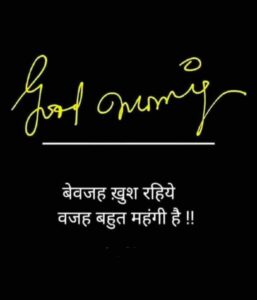 Good morning
बेवजह ख़ुश रहिये
वजह बहुत महंगी है !!